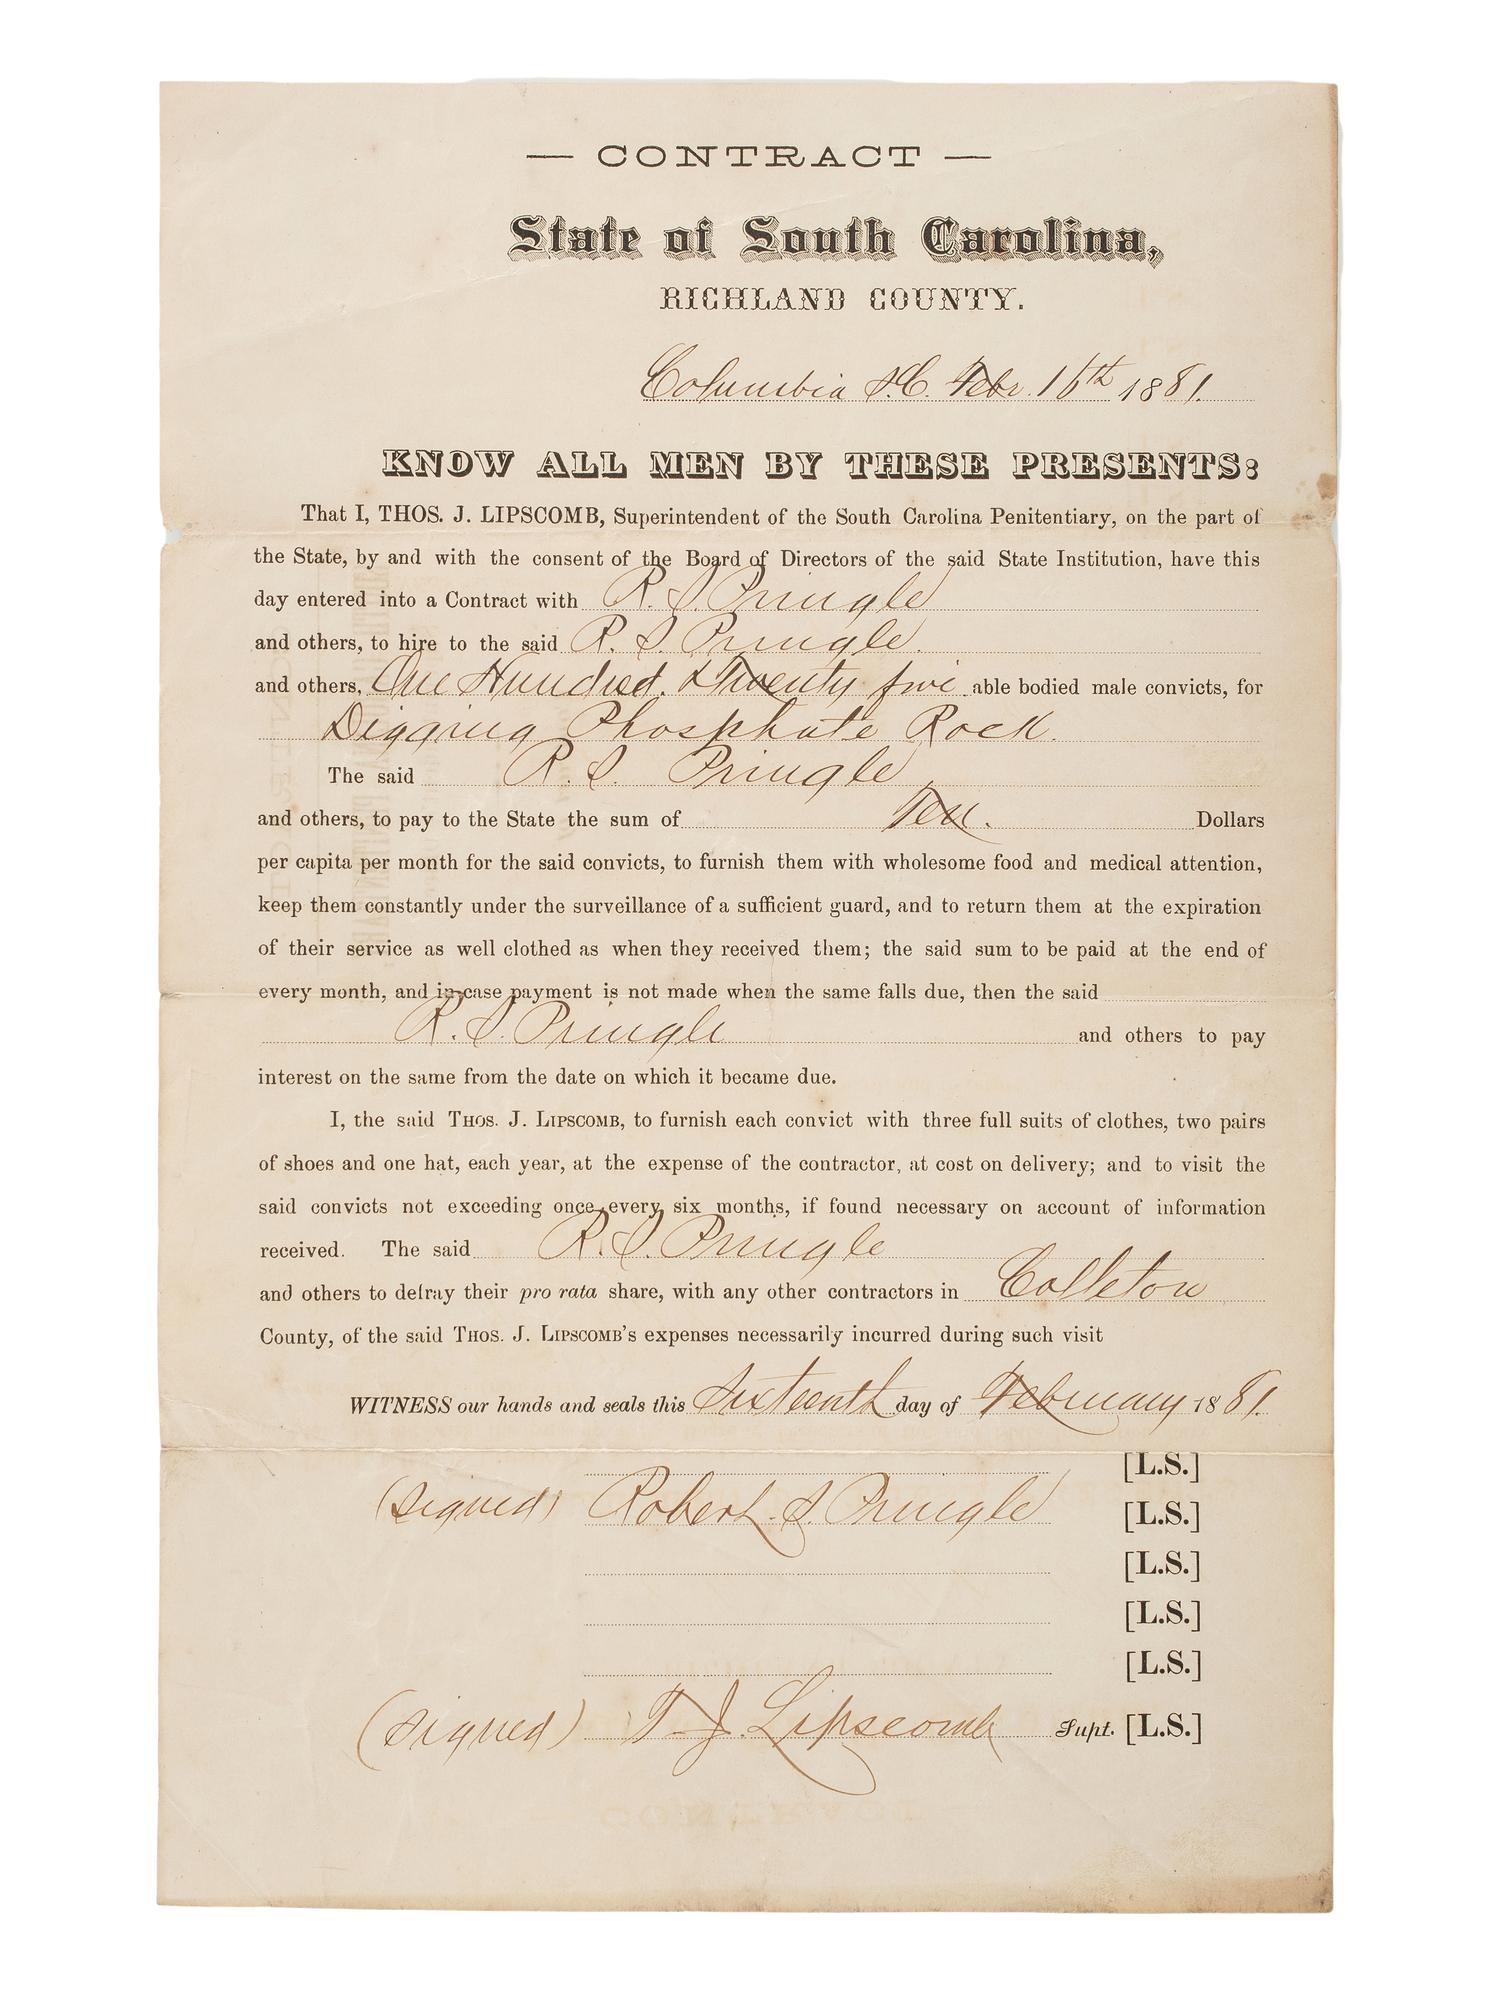 — CONTRACT —
State of South Carolina,
RICHLAND COUNTY.
Columbia S.C. Febr. 16th 1881.
KNOW ALL MEN BY THESE PRESENTS:
That I, THOS. J. LIPSCOMB, Superintendent of the South Carolina Penitentiary, on the part of
the State, by and with the consent of the Board of Directors of the said State Institution, have this
day entered into a Contract with R. S. Pringle
and others, to hire to the said R. S. Pringle.
and others, One Hundred & Twenty five able bodied male convicts, for
Digging Phosphate Rock.
The said R. S. Pringle
and others, to pay to the State the sum of Ten. Dollars
per capita per month for the said convicts, to furnish them with wholesome food and medical attention,
keep them constantly under the surveillance of a sufficient guard, and to return them at the expiration
of their service as well clothed as when they received them; the said sum to be paid at the end of
every month, and in case payment is not made when the same falls due, then the said
R. S. Pringle and others to pay
interest on the same from the date on which it became due.
I, the said THOS. J. LIPSCOMB, to furnish each convict with three full suits of clothes, two pairs
of shoes and one hat, each year, at the expense of the contractor, at cost on delivery; and to visit the
said convicts not exceeding once every six months, if found necessary on account of information
received. The said R. S. Pringle
and others to defray their pro rata share, with any other contractors in Colleton
County, of the said THOS. J. LIPSCOMB'S expenses necessarily incurred during such visit
WITNESS our hands and seals this Sixteenth day of February 1881.
[L.S.]
(signed) Robert S. Pringle [L.S.]
[L.S.]
[L.S.]
[L.S.]
(signed) T. J. Lipscomb Supt. [L.S.]